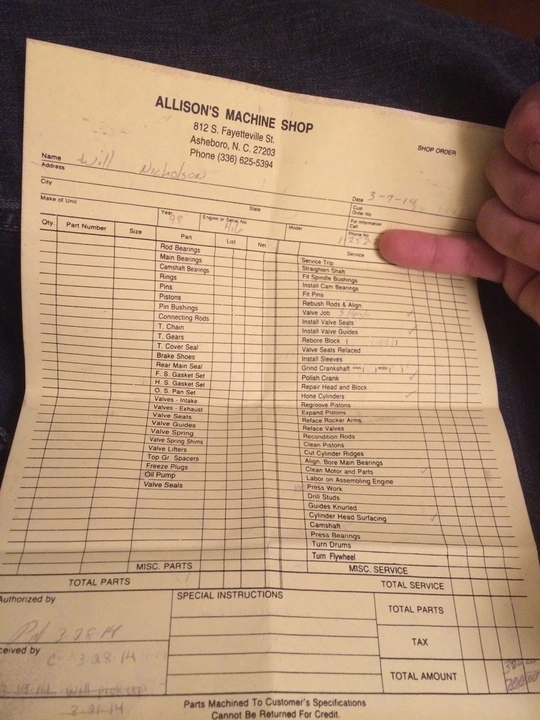 ALLISON'S MACHINE SHOP
812 S. Fayetteville St.
Asheboro, N. C. 27203
Phone (336) 625-5394
SHOP ORDER
Name Will Nicholson
Address
Date 3-7-14
City
State
Cust. Order No.
For Information Call
Make of Unit
Year 98
Engine or Serial No. 4.6
Model
Phone No.
Qty. Part Number Size Part List Net Service
Rod Bearings
Main Bearings
Camshaft Bearings
Rings
Pins
Pistons
Pin Bushings
Connecting Rods
T. Chain
T. Gears
T. Cover Seal
Brake Shoes
Rear Main Seal
F. S. Gasket Set
H. S. Gasket Set
O. S. Pan Set
Valves - Intake
Valves - Exhaust
Valve Seats
Valve Guides
Valve Spring
Valve Spring Shims
Valve Lifters
Top Gr. Spacers
Freeze Plugs
Oil Pump
Valve Seals
MISC. PARTS
TOTAL PARTS
Service Trip
Straighten Shaft
Fit Spindle Bushings
Install Cam Bearings
Fit Pins
Rebush Rods & Align
Valve Job
Install Valve Seats
Install Valve Guides
Rebore Block
Valve Seats Refaced
Install Sleeves
Grind Crankshaft
Polish Crank
Repair Head and Block
Hone Cylinders
Regroove Pistons
Expand Pistons
Reface Rocker Arms
Reface Valves
Recondition Rods
Clean Pistons
Cut Cylinder Ridges
Align. Bore Main Bearings
Clean Motor and Parts
Labor on Assembling Engine
Press Work
Drill Studs
Guides Knurled
Cylinder Head Surfacing
Camshaft
Press Bearings
Turn Drums
Turn Flywheel
MISC. SERVICE
TOTAL SERVICE
Authorized by
SPECIAL INSTRUCTIONS
TOTAL PARTS
Pd 3-28-14
TAX
ceived by
C 3-28-14
TOTAL AMOUNT
3-21-14
Parts Machined To Customer's Specifications
Cannot Be Returned For Credit.